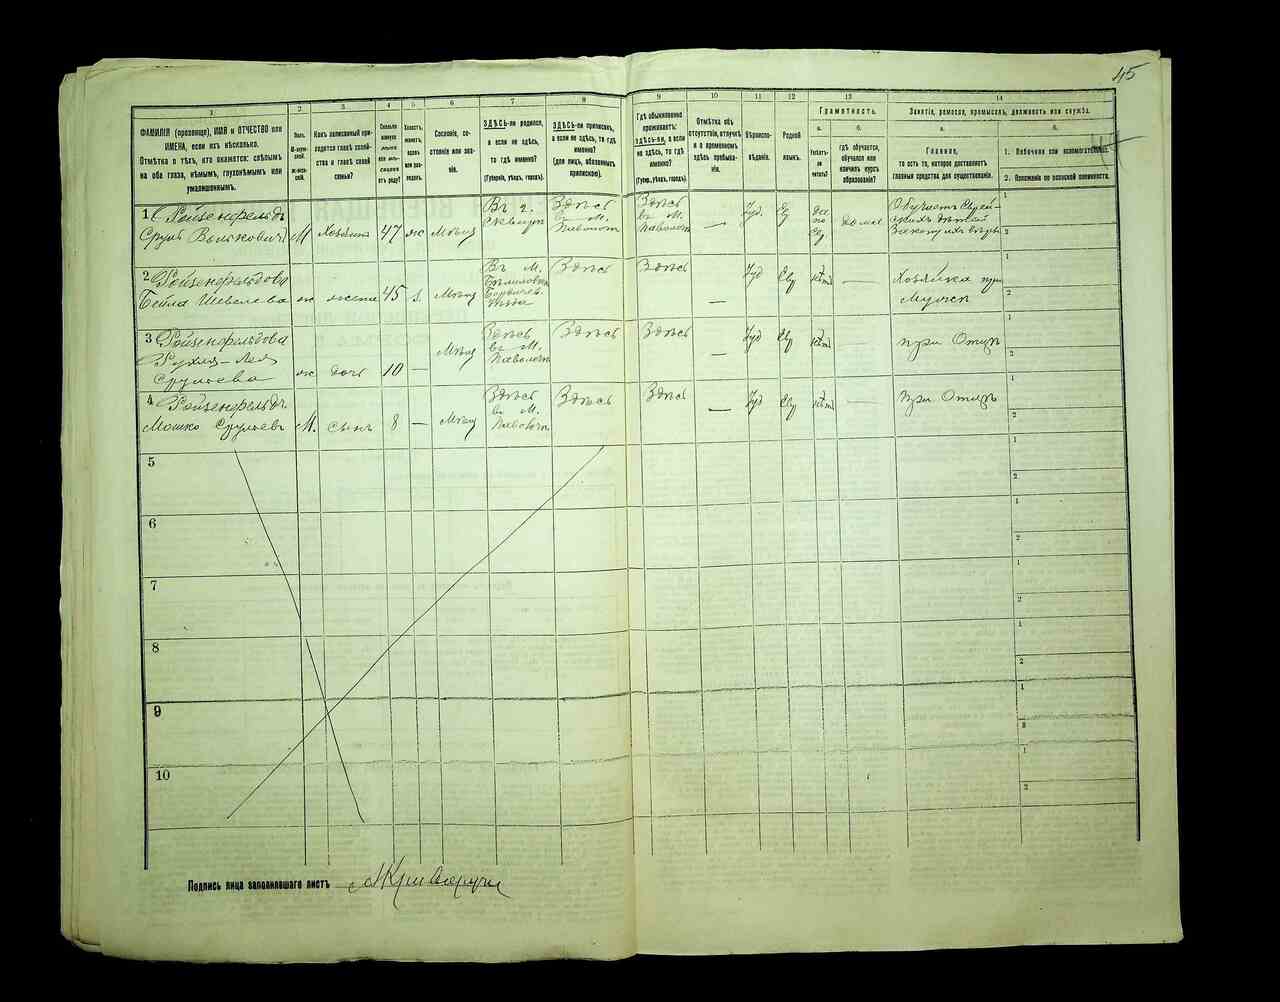 45
1.
2.
3.
4
5
6
7
8
9
10
11
12
13
14
ФАМИЛІЯ (прозвище), ИМЯ и ОТЧЕСТВО или
ИМЕНА, если ихъ нѣсколько.
Отмѣтка о тѣхъ, кто окажется: слѣпымъ
на оба глаза, нѣмымъ, глухонѣмымъ или
умалишеннымъ.
Полъ.
М-мужской.
Ж-женскій.
Какъ записанный при-
ходится главѣ хозяй-
ства и главѣ своей
семьи?
Сколько
минуло
лѣтъ
отъ роду?
Холостъ,
женатъ,
вдовъ
или раз-
веденъ.
Сословіе, со-
стояніе или зва-
ніе.
ЗДѢСЬ-ли родился,
а если не здѣсь,
то гдѣ именно?
(Губернія, уѣздъ, городъ).
ЗДѢСЬ-ли приписанъ,
а если не здѣсь, то гдѣ
именно?
(для лицъ, обязанныхъ
припискою).
Гдѣ обыкновенно
проживаетъ:
ЗДѢСЬ-ли, а если
не здѣсь, то гдѣ
именно?
(Губер., уѣздъ, городъ).
Отмѣтка объ
отсутствіи, отлучкѣ
и о временномъ
здѣсь пребыва-
ніи.
Вѣроиспо-
вѣданіе.
Родной
языкъ.
Грамотность.
а.
Умѣетъ-
ли
читать?
б.
гдѣ обучается,
обучался или
кончилъ курсъ
образованія?
Занятіе, ремесло, промыселъ, должность или служба.
а.
Главное,
то есть то, которое доставляетъ
главныя средства для существованія.
б.
1. Побочное или вспомогательное.
2. Положеніе по воинской повинности.
1 Ройзенфельдъ
Сруль Вольковичъ
М
Хозяинъ
47
ж
Мѣщ
Въ г.
Сквирѣ
Здѣсь
въ М.
Паволочи
Здѣсь
въ М.
Паволоч
—
Іуд.
Ев
да
по
Ев
дома
Обучаетъ Еврей-
скихъ дѣтей
Закону ихъ вѣры
1
2
2 Ройзенфельдова
Бейла Шевелева
ж
жена
45
з.
Мѣщ
Въ М.
Бердичев.
уѣзда
Здѣсь
Здѣсь
—
Іуд
Евр
нѣтъ
—
Хозяйка при
Мужѣ
1
2
3 Ройзенфельдова
Рухля-Лея
Срулева
ж
дочь
10
—
Мѣщ
Здѣсь
въ М.
Паволочи
Здѣсь
Здѣсь
—
Іуд
Евр
нѣтъ
—
при Отцѣ
1
2
4 Ройзенфельдъ
Мошко Срулевъ
М.
сынъ
8
—
Мѣщ
Здѣсь
въ М.
Паволочи
Здѣсь
Здѣсь
—
Іуд
Евр
нѣтъ
—
При Отцѣ
1
2
5
1
2
6
1
2
7
1
2
8
1
2
9
1
2
10
1
2
Подпись лица заполнившаго листъ